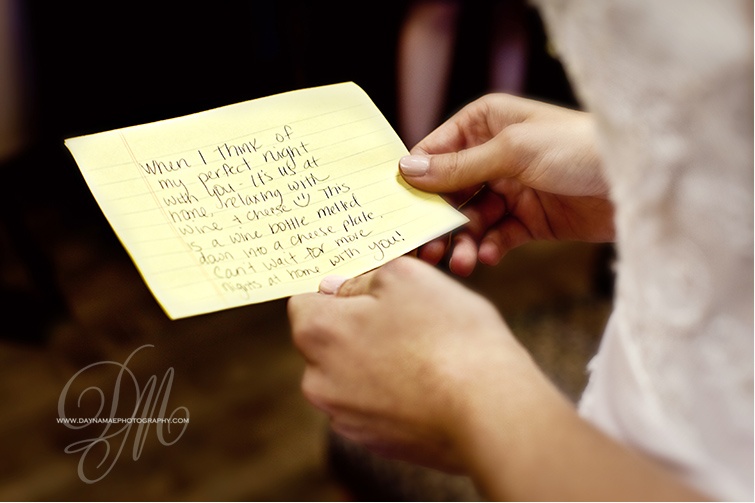 When I think of
my perfect night
with you. It's us at
home, relaxing with
wine + cheese ☺ This
is a wine bottle melted
down into a cheese plate.
Can't wait for more
nights at home with you!
DM
WWW.DAYNAMAEPHOTOGRAPHY.COM